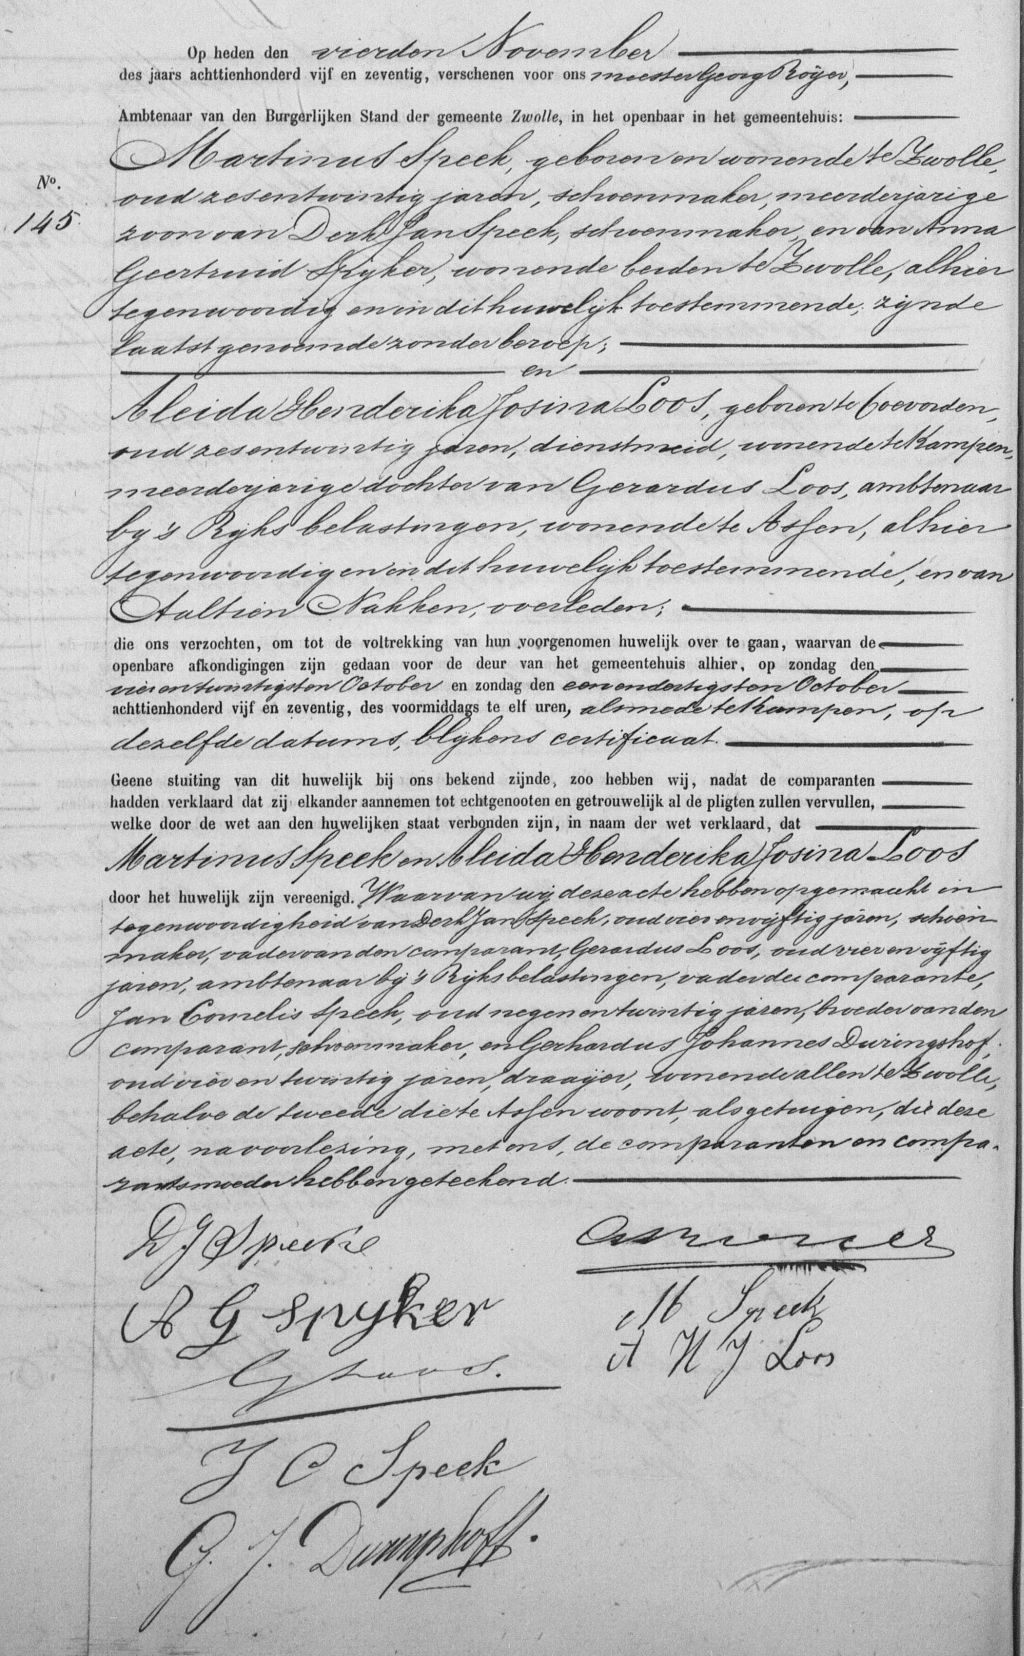 Op heden den vierden November
des jaars achttienhonderd vijf en zeventig, verschenen voor ons meester Georg Röijer,
Ambtenaar van den Burgerlijken Stand der gemeente Zwolle, in het openbaar in het gemeentehuis:
No.
145
Martinus Speek, geboren en wonende te Zwolle,
oud zesentwintig jaren, schoenmaker, meerderjarige
zoon van Derk Jan Speek, schoenmaker, en van Anna
Geertruid Spijker, wonende beiden te Zwolle, alhier
tegenwoordig en in dit huwelijk toestemmende; zijnde
laatstgenoemde zonder beroep;
en
Aleida Henderika Josina Loos, geboren te Coevorden,
oud zesentwintig jaren, dienstmeid, wonende te Kampen,
meerderjarige dochter van Gerardus Loos, ambtenaar
bij 's Rijks belastingen, wonende te Assen, alhier
tegenwoordig en in dit huwelijk toestemmende, en van
Aaltien Nakken, overleden;
die ons verzochten, om tot de voltrekking van hun voorgenomen huwelijk over te gaan, waarvan de
openbare afkondigingen zijn gedaan voor de deur van het gemeentehuis alhier, op zondag den
vierentwintigsten October en zondag den eenendertigsten October
achttienhonderd vijf en zeventig, des voormiddags te elf uren, alsmede te Kampen, op
dezelfde datums, blijkens certificaat.
Geene stuiting van dit huwelijk bij ons bekend zijnde, zoo hebben wij, nadat de comparanten
hadden verklaard dat zij elkander aannemen tot echtgenooten en getrouwelijk al de pligten zullen vervullen,
welke door de wet aan den huwelijken staat verbonden zijn, in naam der wet verklaard, dat
Martinus Speek en Aleida Henderika Josina Loos
door het huwelijk zijn vereenigd. Waarvan wij deze acte hebben opgemaakt in
tegenwoordigheid van Derk Jan Speek, oud vier en vijftig jaren, schoen-
maker, vader van den comparant, Gerardus Loos, oud vier en vijftig
jaren, ambtenaar bij 's Rijks belastingen, vader der comparante,
Jan Cornelis Speek, oud negen en twintig jaren, broeder van den
comparant, schoenmaker, en Gerhardus Johannes Duringshof,
oud vier en twintig jaren, draaijer, wonende allen te Zwolle,
behalve de tweede die te Assen woont, als getuigen, die deze
acte, na voorlezing, met ons, de comparanten en compa-
rants moeder hebben geteekend.
D J Speeke
A G Spyker
M Speek
A H J Loos
G Loos.
J C Speek